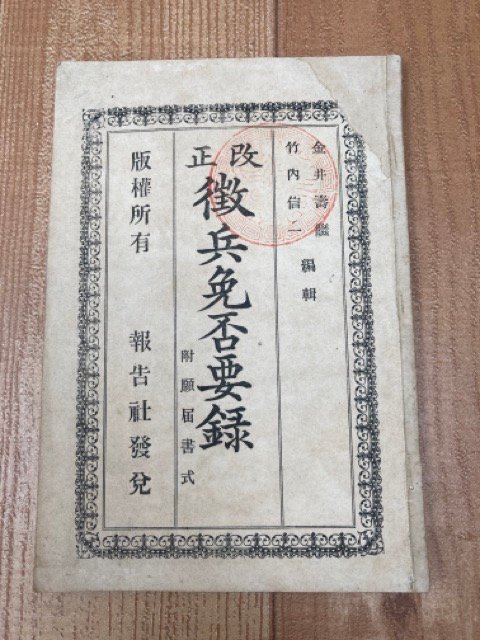 金井壽
竹内信二
編輯
改正
徴兵免否要録
附願届書式
版權所有
報告社發兌